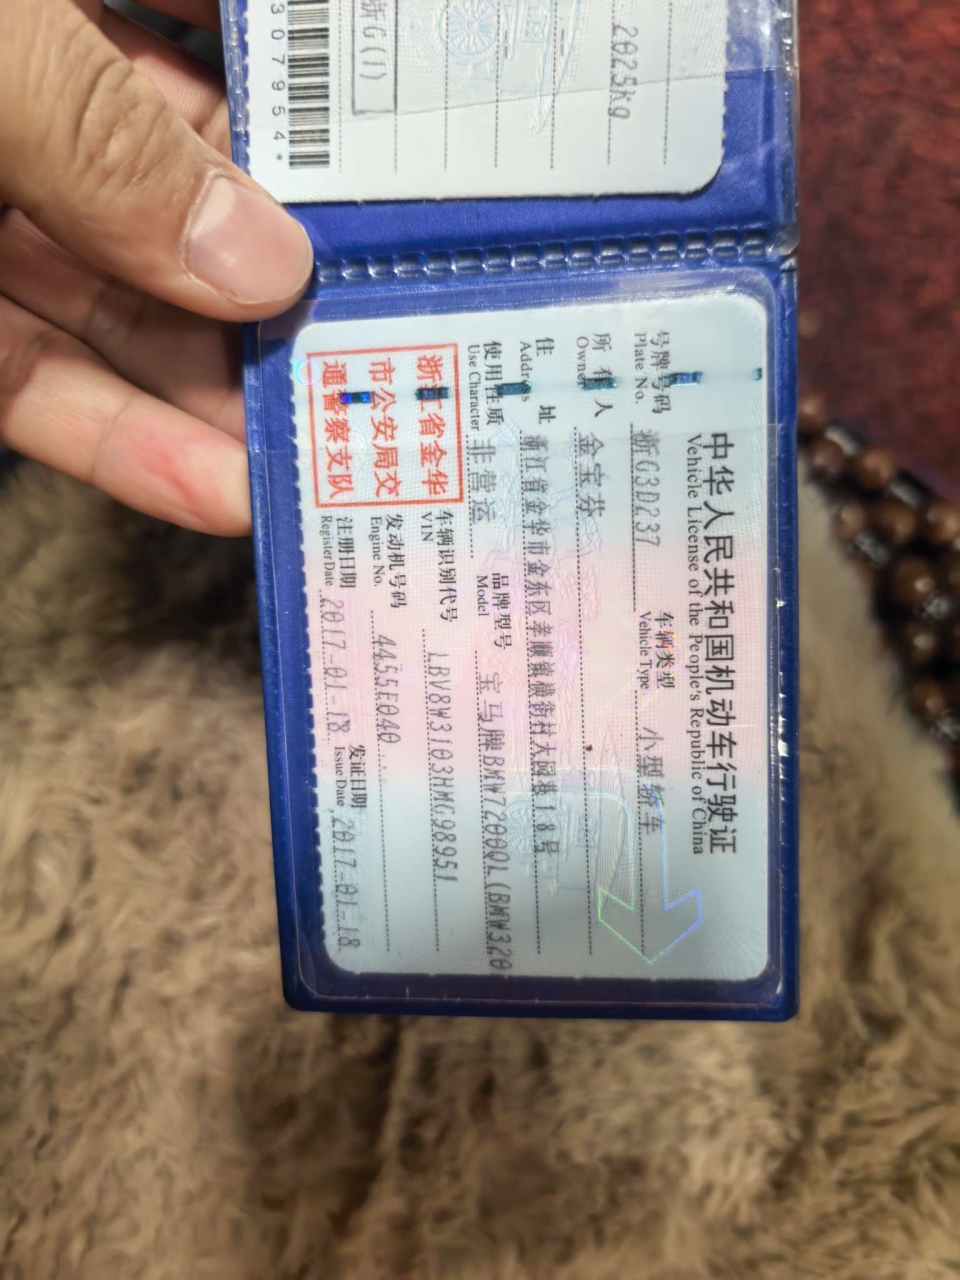 中华人民共和国机动车行驶证
Vehicle License of the People's Republic of China
号牌号码 浙G3D237 车辆类型 小型轿车
Plate No. Vehicle Type
所有人 金宝芬
Owner
住址 浙江省金华市金东区孝顺镇横街村大园巷18号
Address
使用性质 非营运 品牌型号 宝马牌BMW7200QL(BMW320
Use Character Model
浙江省金华
市公安局交
通警察支队
车辆识别代号 LBV8W3103HMG98951
VIN
发动机号码 4455E040
Engine No.
注册日期 2017-01-18 发证日期 2017-01-18
Register Date Issue Date
2025kg
浙G(1)
307954*